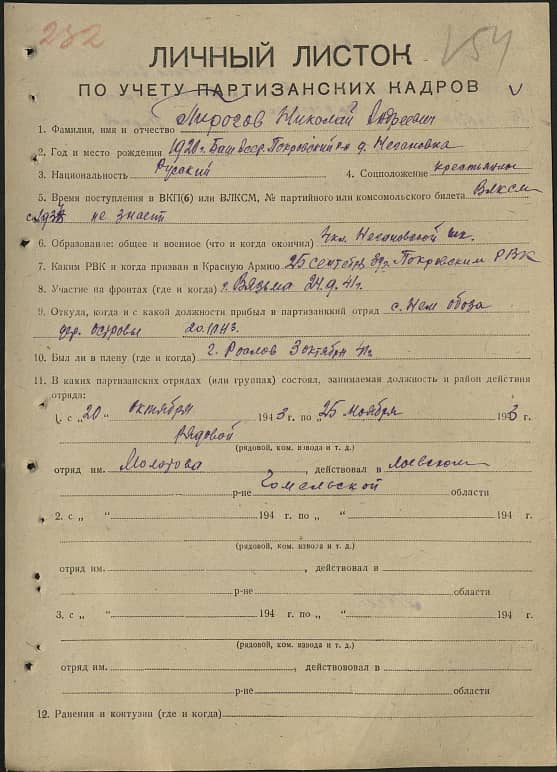 232
ЛИЧНЫЙ ЛИСТОК
ПО УЧЕТУ ПАРТИЗАНСКИХ КАДРОВ
1. Фамилия, имя и отчество Николай
2. Год и место рождения 1920 г. Баш Покровский р-н д.
3. Национальность Русский 4. Соцположение крестьянин
5. Время поступления в ВКП(б) или ВЛКСМ, № партийного или комсомольского билета ВЛКСМ
не знает
6. Образование: общее и военное (что и когда окончил)
7. Каким РВК и когда призван в Красную Армию 25 сентября Покровским РВК
8. Участие на фронтах (где и когда) г. Вязьма 41 г.
9. Откуда, когда и с какой должности прибыл в партизанкий отряд с. Нем обоза
дер. Островы
10. Был ли в плену (где и когда) г. 3 октября 41 г.
11. В каких партизанских отрядах (или группах) состоял, занимаемая должность и район действия
отряда:
1. с „20“ октября 1943 г. по „25 ноября 1943 г.
рядовой
(рядовой, ком. взвода и т. д.)
отряд им. Молотова, действовал в Лоевском
р-не Гомельской области
2. с „ “ 194 г. по „ “ 194 г.
(рядовой, ком. взвода и т. д.)
отряд им. , действовал в
р-не области
3. с „ “ 194 г. по „ “ 194 г.
(рядовой, ком. взвода и т. д.)
отряд им. , действововал в
р-не области
12. Ранения и контузии (где и когда)